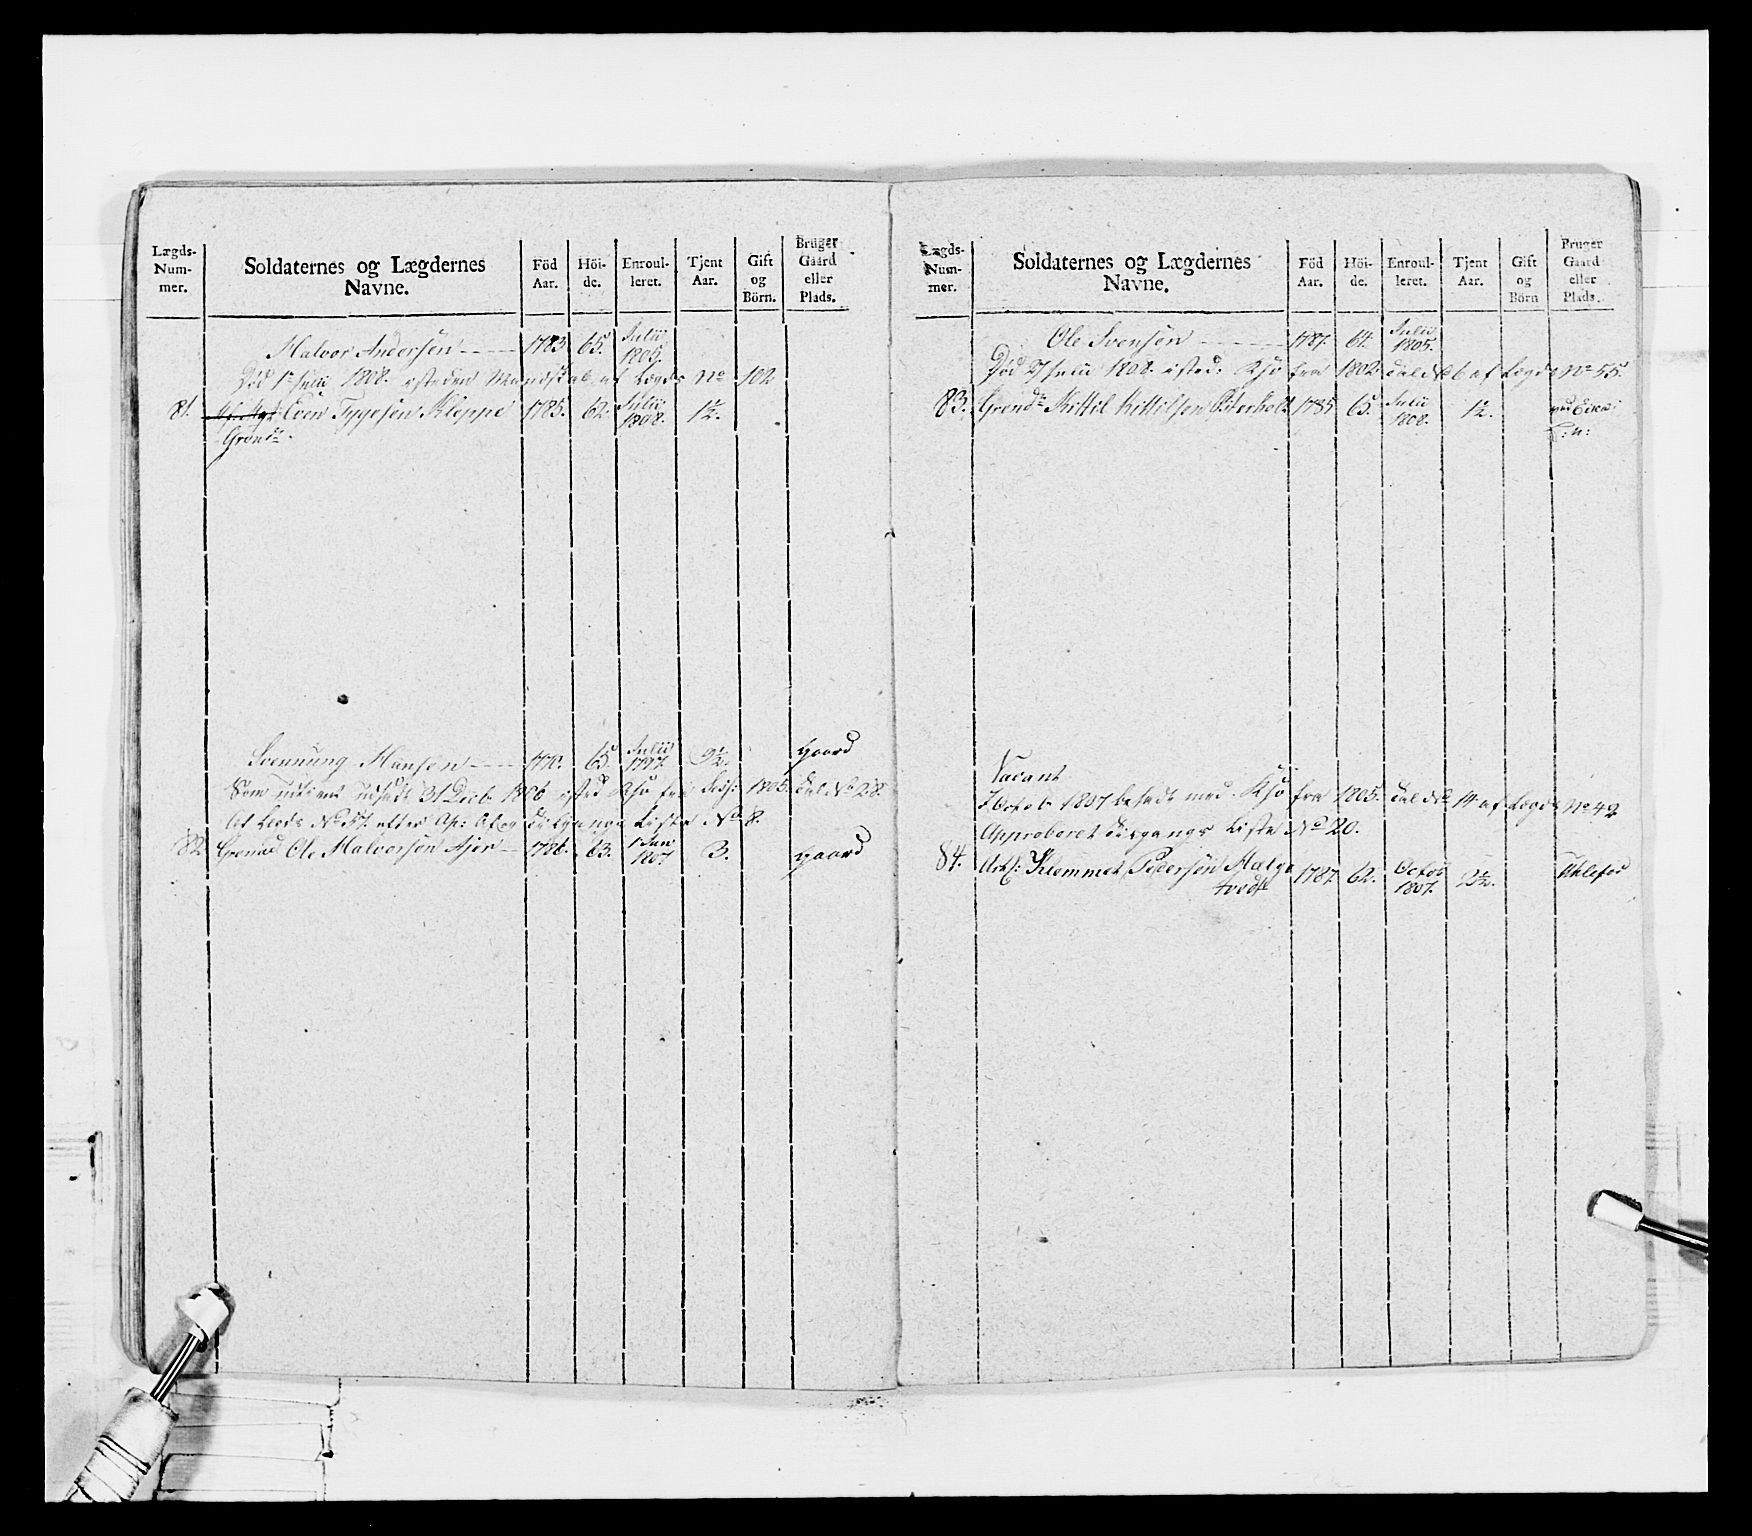 Lægds-
Num-
mer.
Soldaternes og Lægdernes
Navne.
Föd
Aar.
Höi-
de.
Enroul-
leret.
Tjent
Aar.
Gift
og
Börn.
Bruger
Gaard
eller
Plads.
Halvor Andersen 1783 65. Julii
1805.
Död 1e Julii 1808. isteden Mandskab af Lægds No 102
81. Even Kleppe 1785. 62. Julii
1808. 1½.
Grend.
Svennung Hansen 1770. 65. Julii
1797. 9½. gaard
Som udtient udsadt 31 Decb. 1806 isted 1805. No 28.
af Lægds No 57. efter Ap: Afgangs Liste No 8.
82. Grenad Ole Halvorsen 1786. 63. 1 Jan
1807 3. gaard
Lægds-
Num-
mer.
Soldaternes og Lægdernes
Navne.
Föd
Aar.
Höi-
de.
Enroul-
leret.
Tjent
Aar.
Gift
og
Börn
Bruger
Gaard
eller
Plads.
Ole Svensön 1787. 64. Julii
1805.
Död 27 Julii 1808. isted. fra 1802 No 6 af Lægds No 55.
83. Grend. Kittil Kittilsen Österholt 1785 65. Julii
1808. 1½.
Vacant
7 Octob. 1807 besadt med fra 1805. No 14 af Lægds No 42
Approberet Afgangs Liste No 20.
84. Klemmet Pedersen 1787. 62. Octob
1807. 2½. Uhlefos